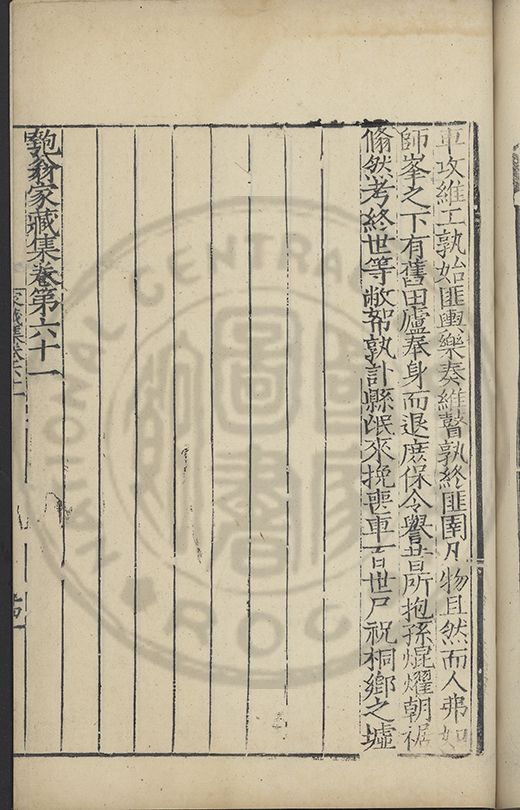 車攻維工孰始匪輿樂奏維瞽孰終匪圉凡物且然而人弗如
師峯之下有舊田廬奉身而退庶保令譽昔所抱孫焜燿朝裾
翛然考終世等敝帤孰訃縣氓來挽喪車百世尸祝桐鄉之墟
匏翁家藏集卷第六十一
家藏集卷六十一
NATIONAL CENTRAL
R.O.C